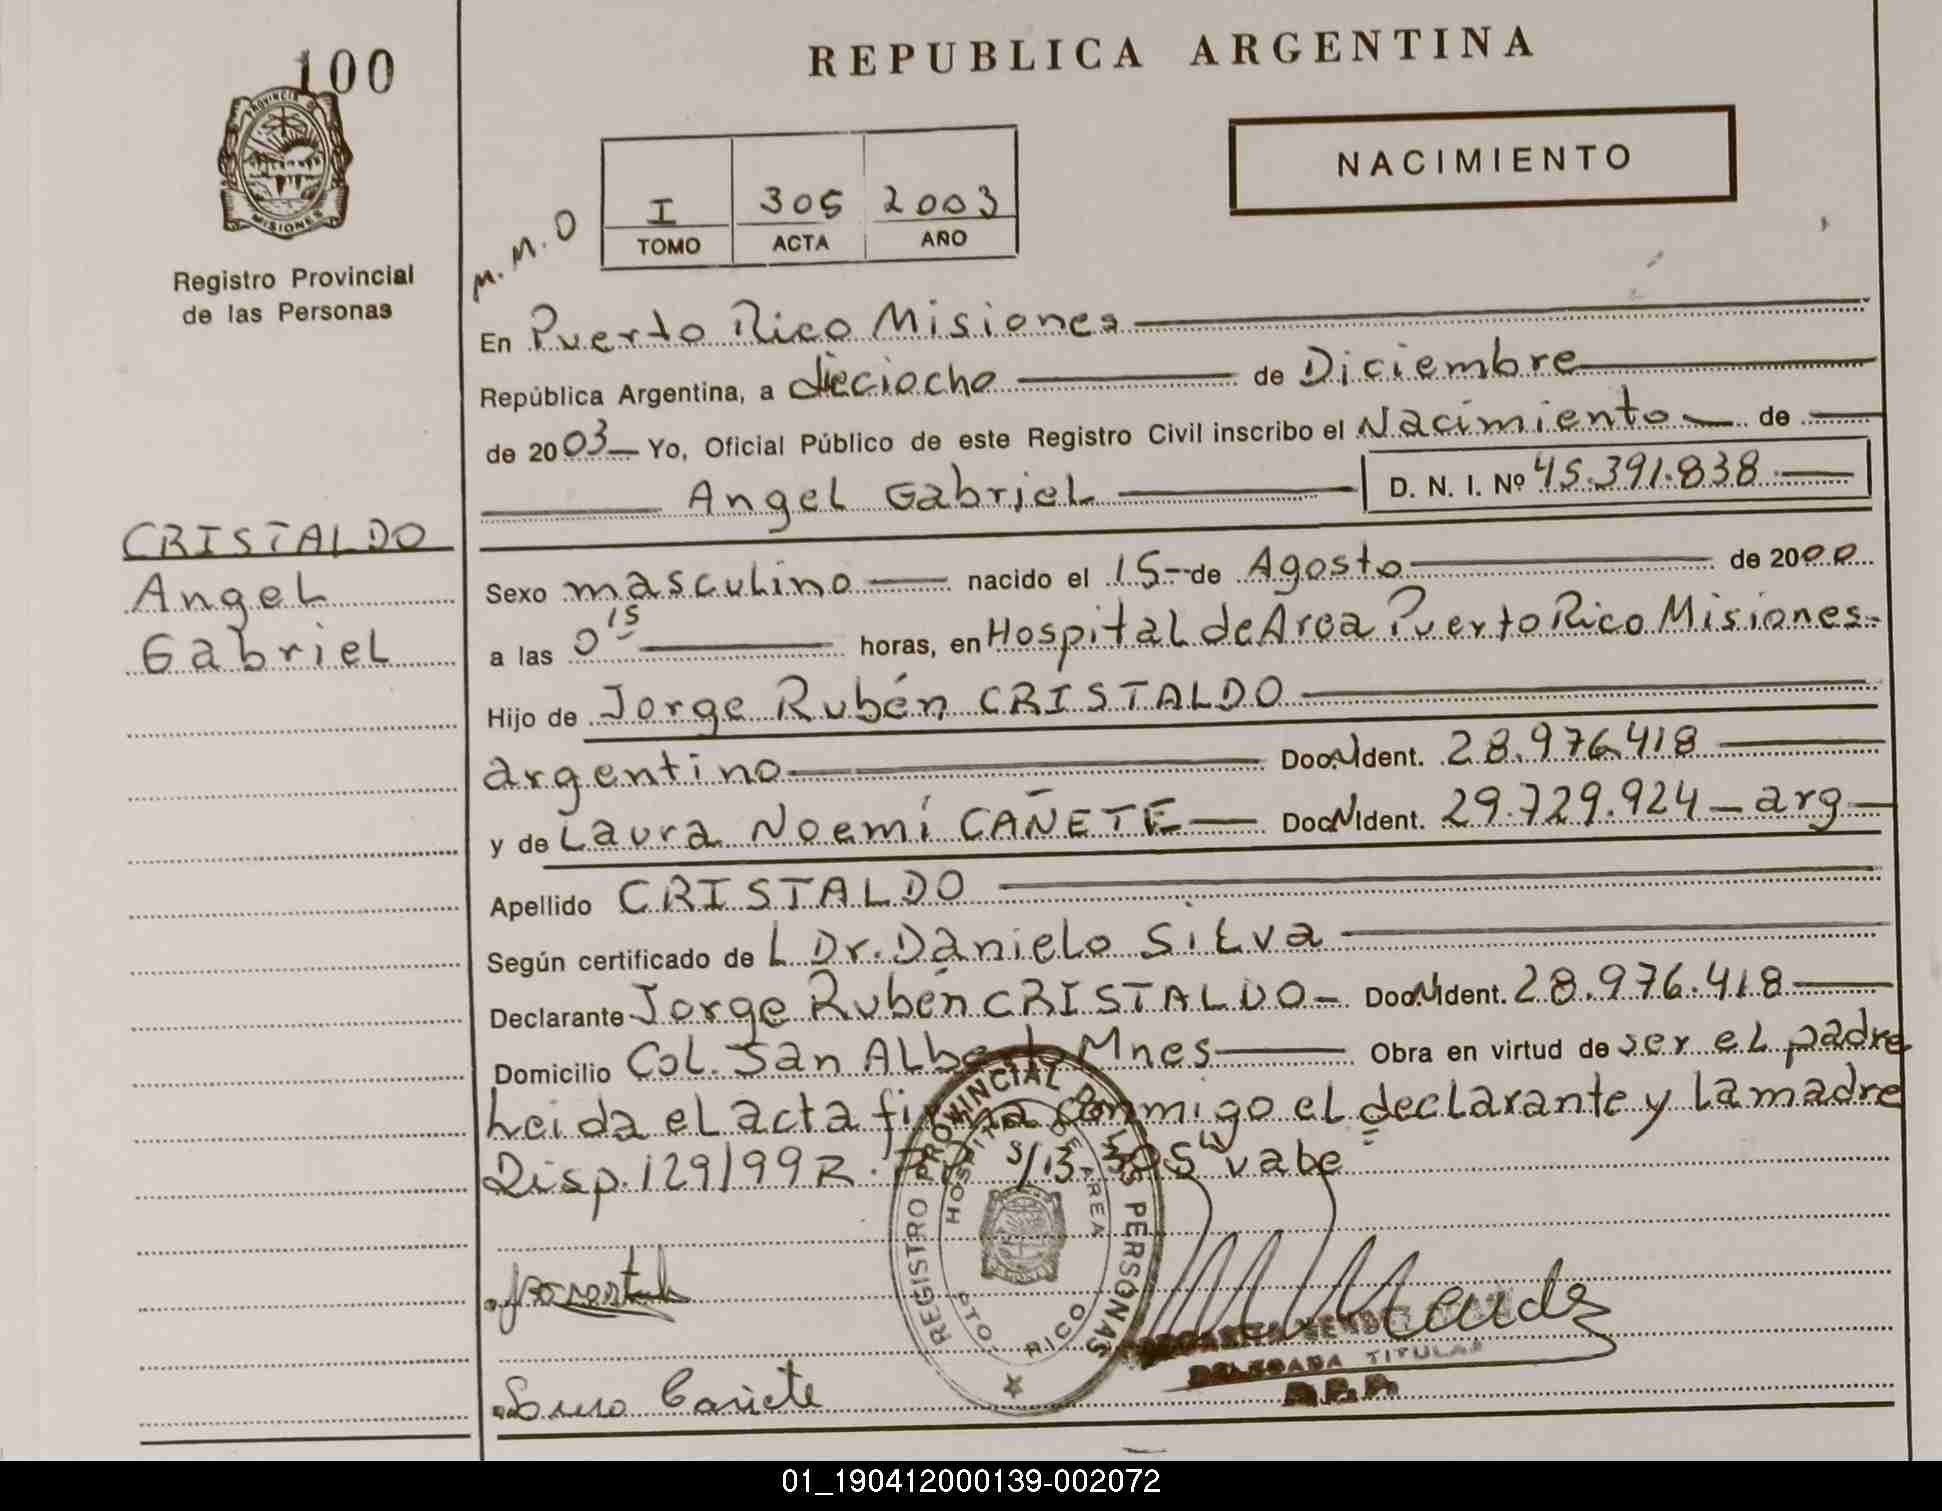 100
PROVINCIA DE
MISIONES
Registro Provincial
de las Personas
REPUBLICA ARGENTINA
NACIMIENTO
M.M.O
I 305 2003
TOMO ACTA AÑO
En Puerto Rico Misiones
República Argentina, a dieciocho de Diciembre
de 2003 Yo, Oficial Público de este Registro Civil inscribo el Nacimiento de
Angel Gabriel D. N. I. Nº 45.391.838
CRISTALDO
Angel
Gabriel
Sexo masculino nacido el 15 de Agosto de 2000
a las 0 15 horas, en Hospital de Area Puerto Rico Misiones
Hijo de Jorge Rubén CRISTALDO
argentino Doc.N.Ident. 28.976.418
y de Laura Noemí CAÑETE Doc.N.Ident. 29.729.924 - arg
Apellido CRISTALDO
Según certificado de L Dr. Danielo Silva
Declarante Jorge Rubén CRISTALDO Doc.N.Ident. 28.976.418
Domicilio Col. San Alberto Mnes Obra en virtud de ser el padre
Leida el acta firma conmigo el declarante y la madre
Disp. 129/99 R. S/13 "305" vabe
REGISTRO PROVINCIAL DE LAS PERSONAS
HOSPITAL DE AREA
PTO. RICO
Mendez
DELEGADA TITULAR
R.P.P.
Laura Cañete
01_190412000139-002072